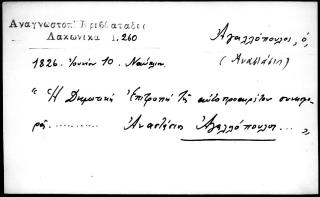 Αναγνωστοπ Πριβαταδες
Λακωνικα 1,260
Αγαλλόπουλοι, ὁ,
(Αναστάσιος)
1826. Ἰουνίου 10. Ναύπλιον.
"Ἡ Δημωτική Ἐπιτροπή τῆς αὐτοπροαιρέτου συνεισφο-
ρᾶς .......... Ἀναστάσιον Ἀγαλλόπουλον ...»